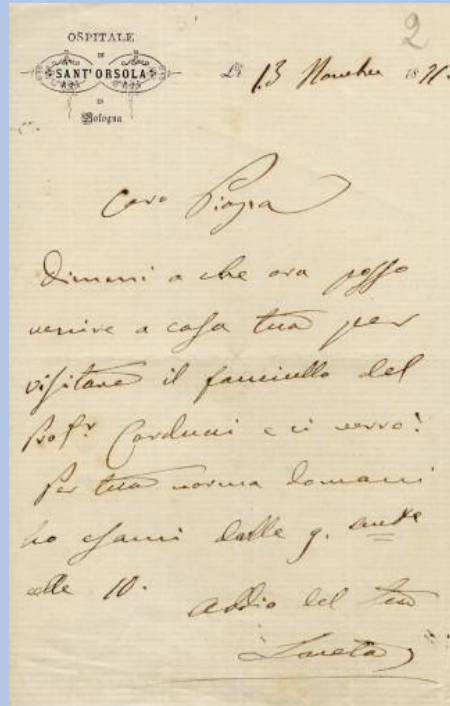 2
OSPITALE
DI
SANT' ORSOLA
IN
Bologna
Lì 13 Novembre 1871.
Caro
Dimmi a che ora posso
venire a casa tua per
visitare il fanciullo del
Profr Carducci e ci verrò!
Per tua norma domani
ho esami dalle 9. antte
alle 10.
Addio del tuo
Loreta